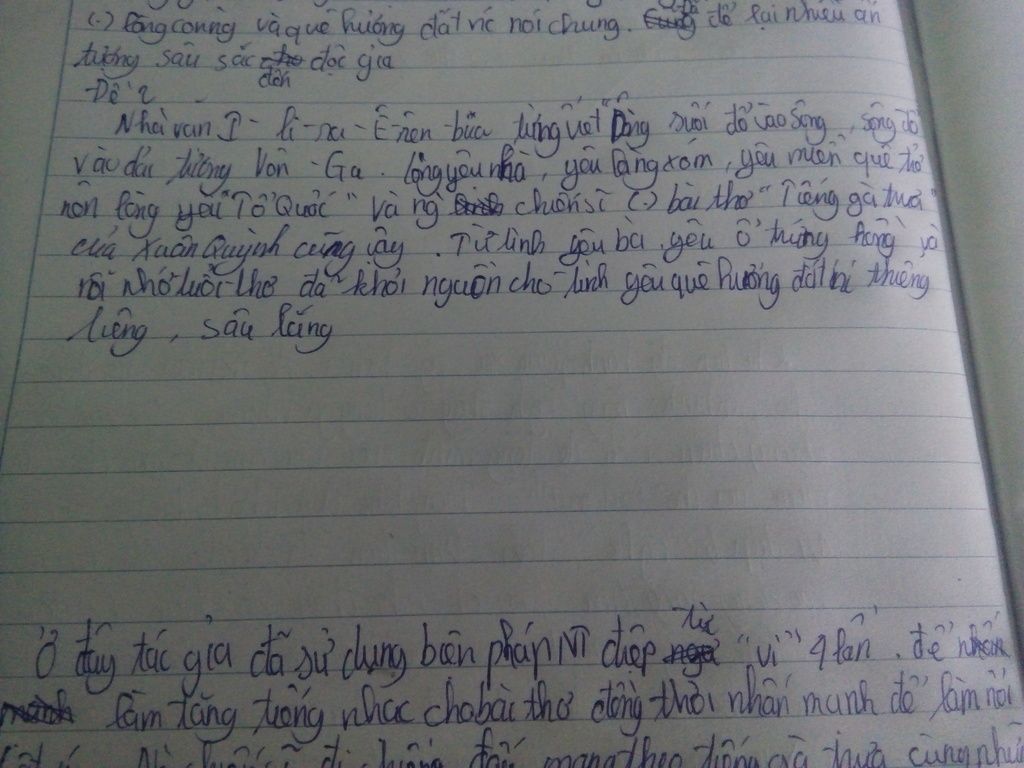 (.) lòng con ng và quê hương đất nc nói chung. đã để lại nhiều ấn
tượng sâu sắc đến độc giả
Đề 2
Nhà văn I - li - na - Ê - ren - bua từng viết "Dòng suối đổ vào sông, sông đổ
vào dải trường Vôn - Ga. Lòng yêu nhà, yêu làng xóm, yêu miền quê trở
nên lòng yêu "Tổ Quốc" và ng chiến sĩ (.) bài thơ "Tiếng gà trưa"
của Xuân Quỳnh cũng vậy. Từ tình yêu bà, yêu ổ trứng hồng và
nỗi nhớ tuổi thơ đã khơi nguồn cho tình yêu quê hương đất nc thiêng
liêng, sâu lắng
Ở đây tác giả đã sử dụng biện pháp NT điệp từ "vì" 4 lần. để
làm tăng tiếng nhạc cho bài thơ đồng thời nhấn mạnh để làm nổi
chiến sĩ đi chiến đấu mang theo tiếng gà trưa cùng